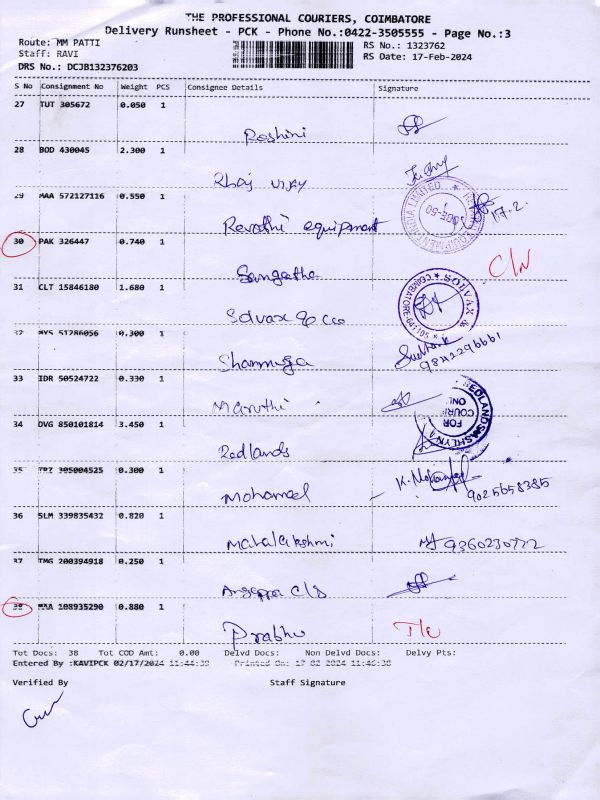 THE PROFESSIONAL COURIERS, COIMBATORE
Delivery Runsheet - PCK - Phone No.:0422-3505555 - Page No.:3
Route: MM PATTI RS No.: 1323762
Staff: RAVI RS Date: 17-Feb-2024
DRS No.: DCJB132376203
S No Consignment No Weight PCS Consignee Details Signature
27 TUT 305672 0.050 1
Roshini
28 BOD 430045 2.300 1
Rhaj vijay
29 MAA 572127116 0.550 1
Revathi equipment 17.2.
30 PAK 326447 0.740 1
Sangeetha C/N
31 CLT 15846180 1.680 1
Solvax & Co SOLVAX & COIMBATORE
32 MYS 51286056 0.300 1
Shanmuga 9842296661
33 IDR 50524722 0.330 1
Maruthi
34 DVG 850101814 3.450 1
Redlands REDLANDS FOR COURI ONL
35 TRZ 305004525 0.300 1
Mohamed K. 9025658385
36 SLM 339835432 0.820 1
Mahalakshmi 9360230772
37 TMG 200394918 0.250 1
Angappa C/S
38 MAA 108935290 0.880 1
Prabhu
Tot Docs: 38 Tot COD Amt: 0.00 Delvd Docs: Non Delvd Docs: Delvy Pts:
Entered By :KAVIPCK 02/17/2024 11:44:38 Printed On: 17 02 2024 11:46:38
Verified By Staff Signature